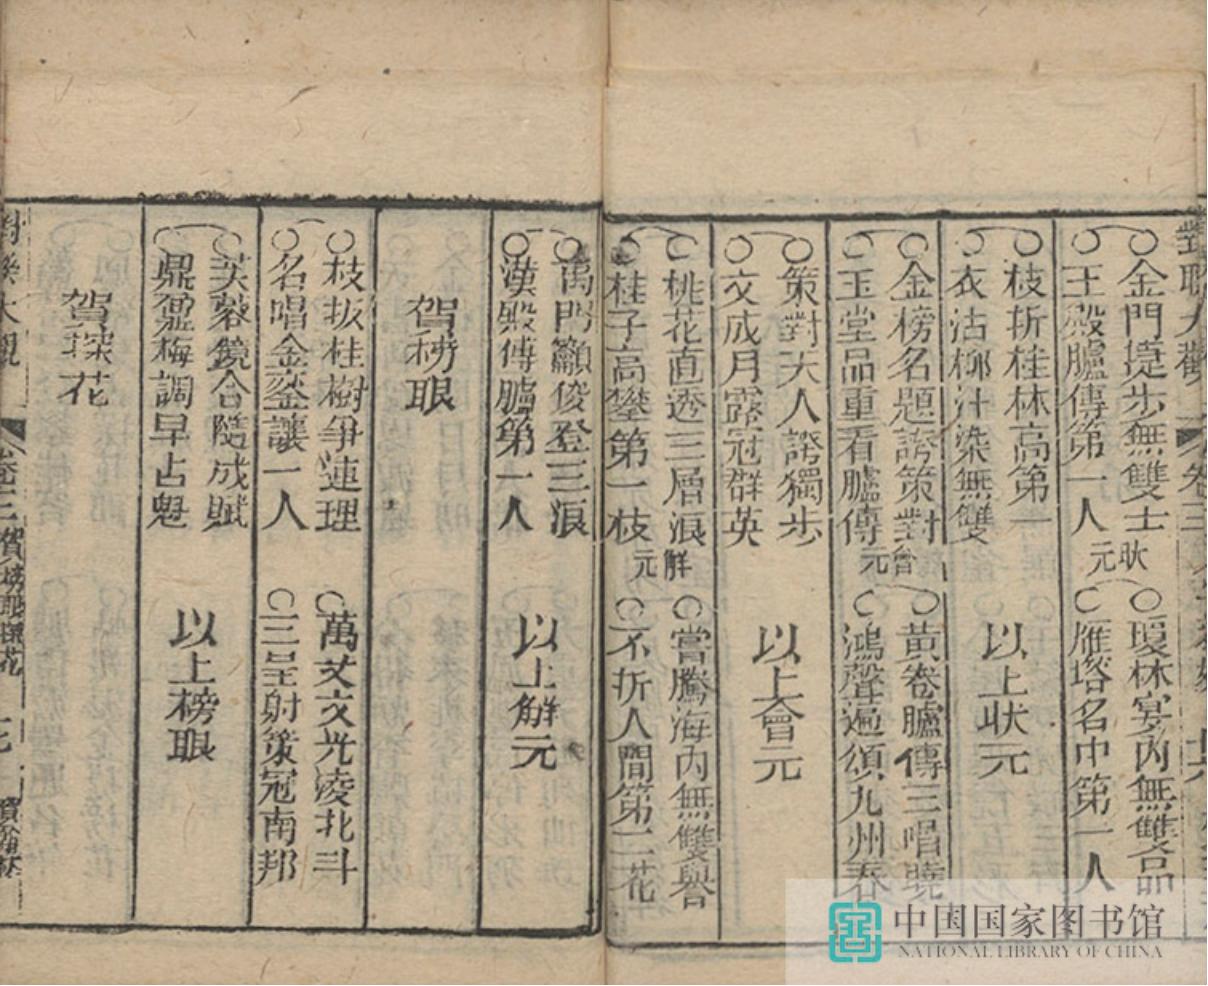 金門提步無雙士
王殿臚傳第一人
狀元
瓊林宴內無雙品
雁塔名中第一人
枝折桂林高第一
衣沾柳汁染無雙
以上狀元
金榜名題誇策對
玉堂品重看臚傳
會元
黃卷臚傳三唱曉
鴻聲遍頌九州春
策對天人誇獨步
文成月露冠群英
以上會元
桃花直透三層浪
桂子高攀第一枝
解元
嘗騰海內無雙譽
不折人間第二花
萬門籲俊登三浪
漢殿傳臚第一人
以上解元
賀榜眼
枝扳桂樹爭蓮理
名唱金鑾讓一人
萬丈文光凌北斗
三呈射策冠南邦
芙蓉鏡合隨成賦
鼎鼐梅調早占魁
以上榜眼
賀探花
對聯大觀
卷三
賀榜眼探花
中国国家图书馆
NATIONAL LIBRARY OF CHINA